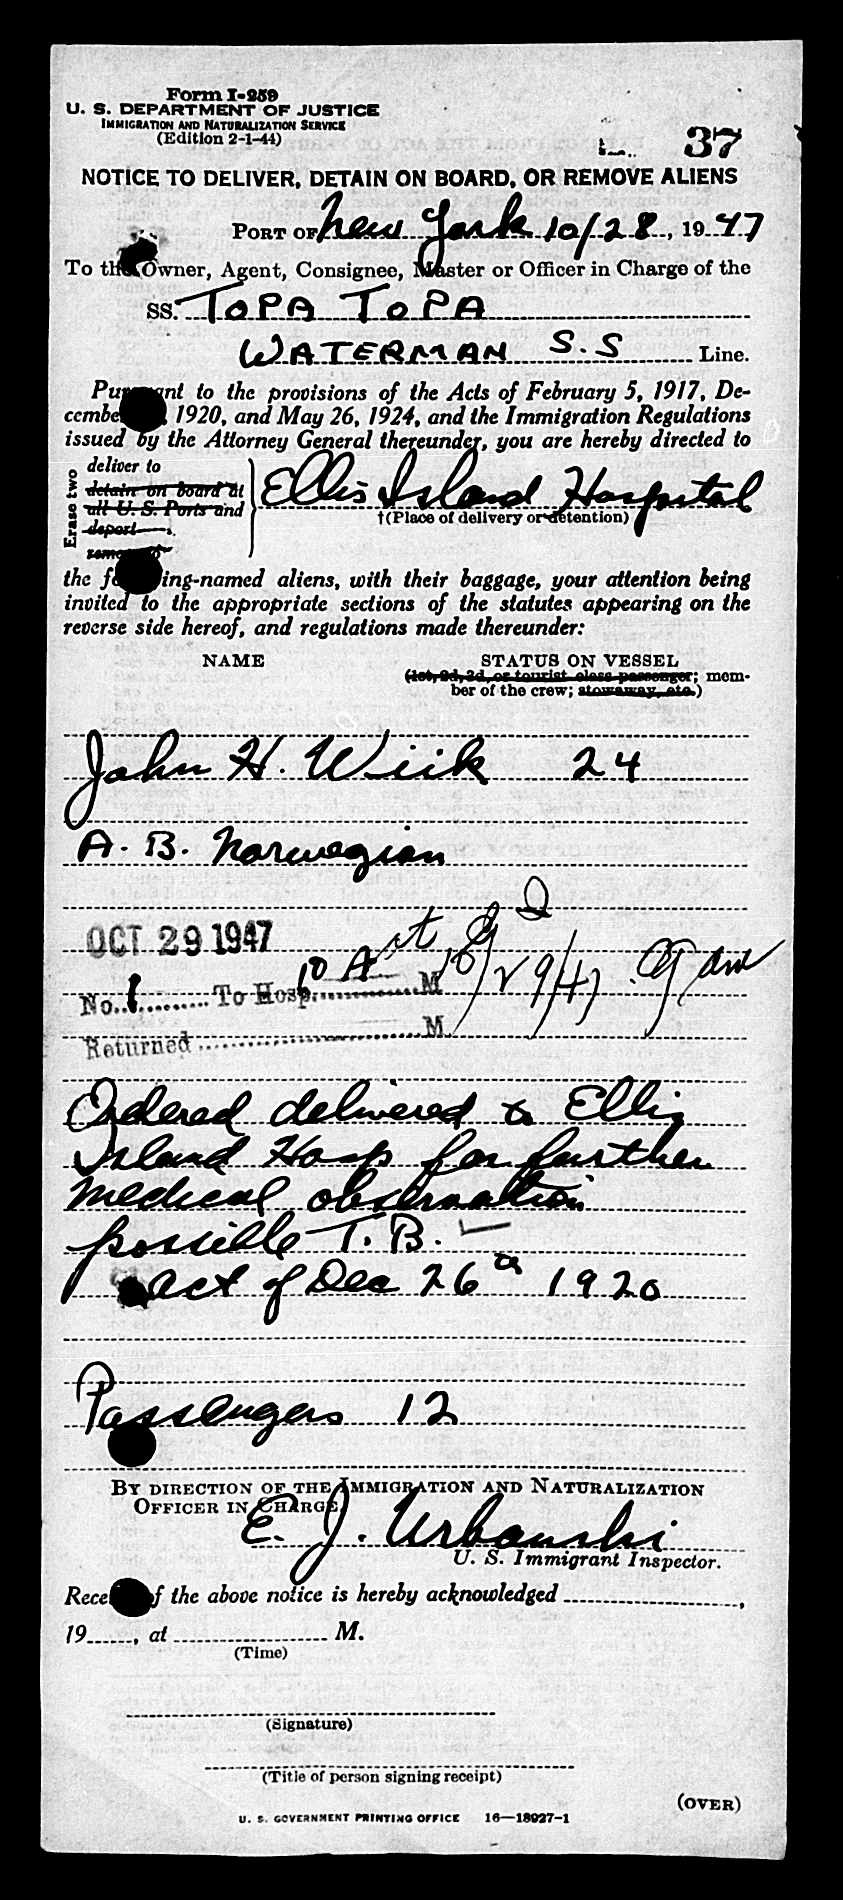 Form I-259
U. S. DEPARTMENT OF JUSTICE
IMMIGRATION AND NATURALIZATION SERVICE
(Edition 2-1-44)
37
NOTICE TO DELIVER, DETAIN ON BOARD, OR REMOVE ALIENS
PORT OF New York 10/28, 1947
To the Owner, Agent, Consignee, Master or Officer in Charge of the
SS. TOPA TOPA
WATERMAN S.S Line.
Pursuant to the provisions of the Acts of February 5, 1917, De-
cember 1920, and May 26, 1924, and the Immigration Regulations
issued by the Attorney General thereunder, you are hereby directed to
Erase two
deliver to
detain on board at
all U. S. Ports and
deport
remove
Ellis Island Hospital
†(Place of delivery or detention)
the following-named aliens, with their baggage, your attention being
invited to the appropriate sections of the statutes appearing on the
reverse side hereof, and regulations made thereunder:
NAME STATUS ON VESSEL
(1st, 2d, 3d, or tourist class passenger; mem-
ber of the crew; stowaway, etc.)
John H. Wiik 24
A. B. Norwegian
OCT 29 1947
No. 1 To Hosp. 10 A M 10/29/47 9 am
Returned M
Ordered delivered to Ellis
Island Hosp for further
medical observation
possible T. B.
Act of Dec 26th 1920
Passengers 12
BY DIRECTION OF THE IMMIGRATION AND NATURALIZATION
OFFICER IN CHARGE
E. J. Urbanski
U. S. Immigrant Inspector.
Receipt of the above notice is hereby acknowledged ,
19 , at M.
(Time)
(Signature)
(Title of person signing receipt)
(OVER)
U. S. GOVERNMENT PRINTING OFFICE 16—18927-1